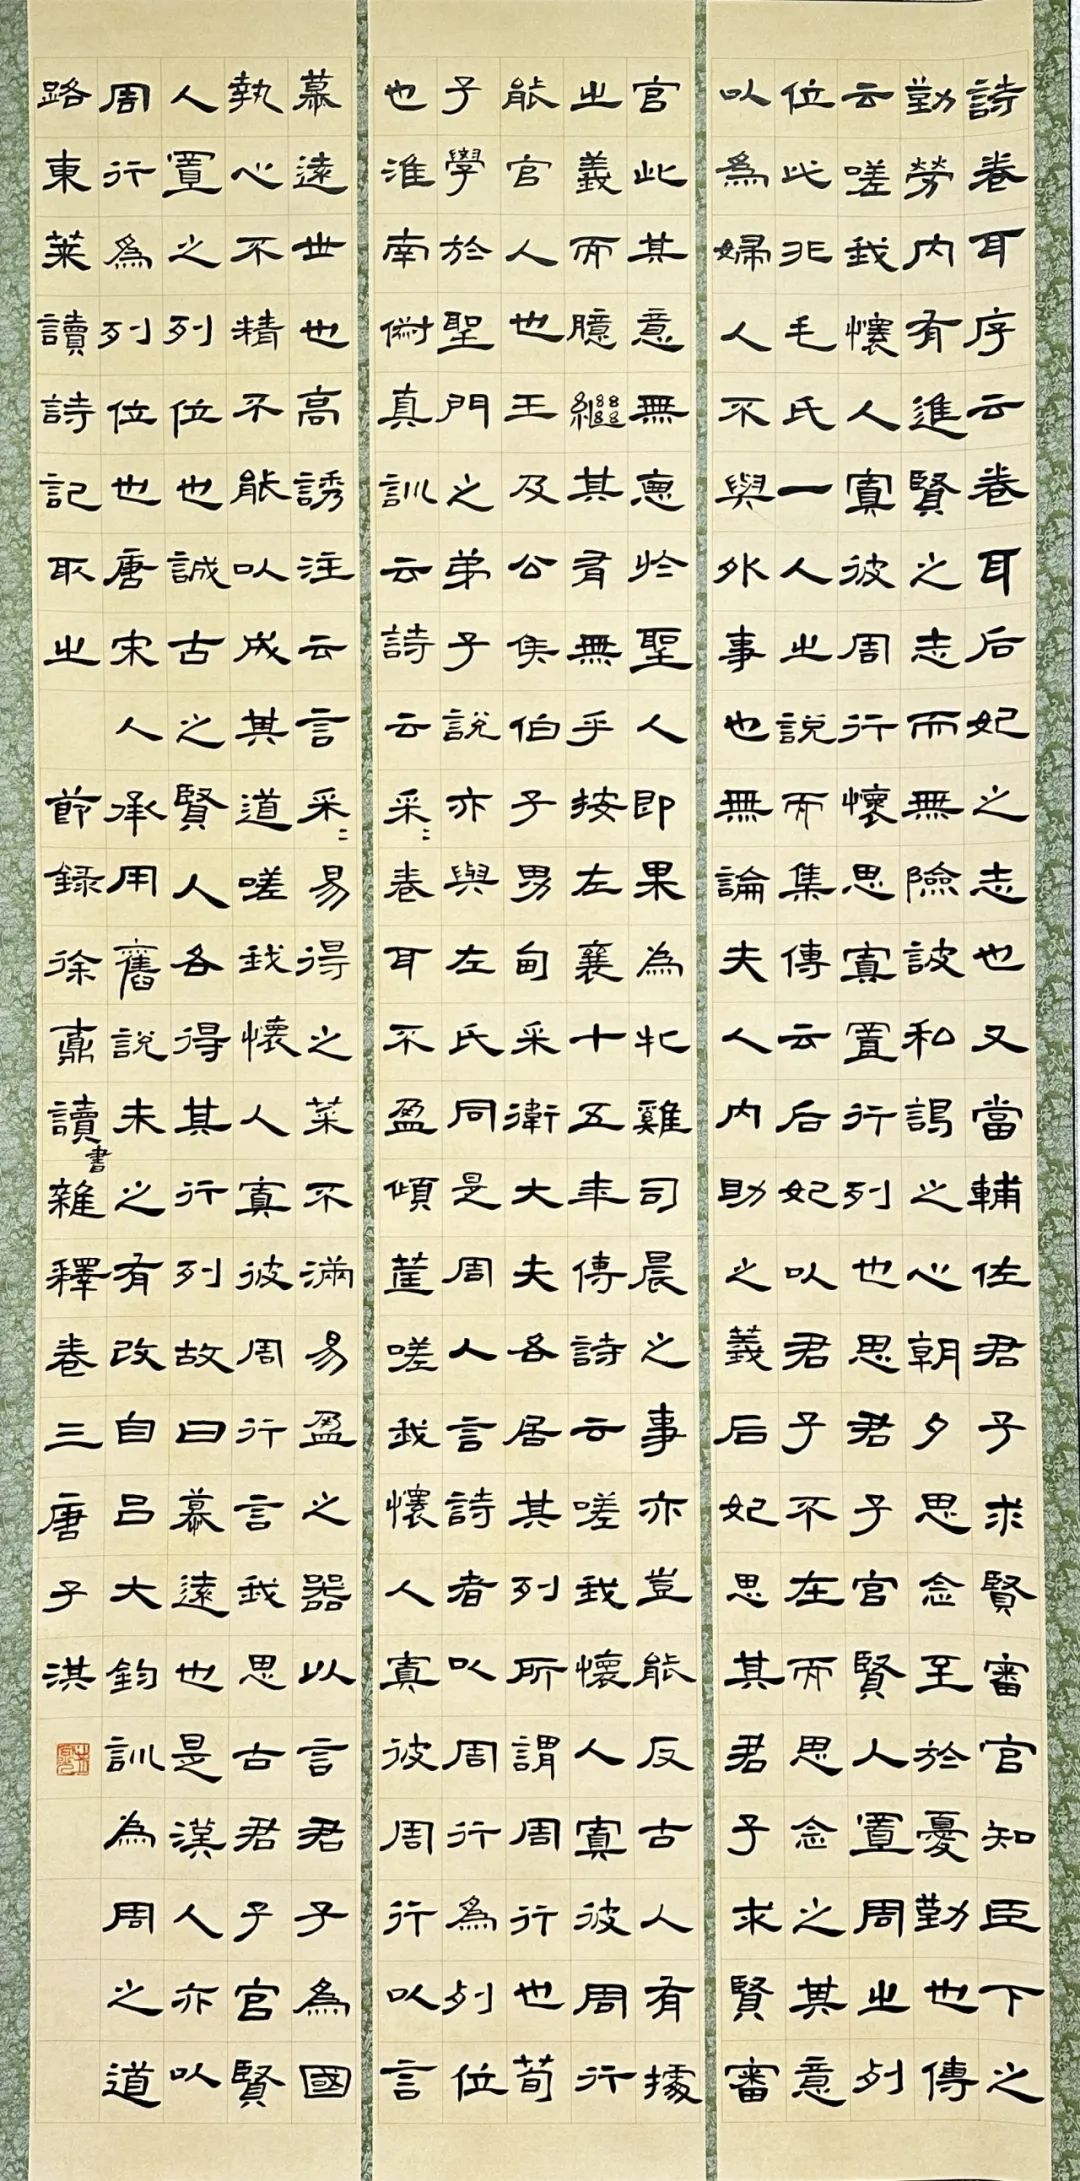 詩卷耳序云卷耳后妃之志也又當輔佐君子求賢審官知臣下之
勤勞內有進賢之志而無險詖私謁之心朝夕思念至於憂勤也傳
云嗟我懷人寘彼周行懷思寘置行列也思君子官賢人置周之列
位此非毛氏一人之說而集傳云后妃以君子不在而思念之其意
以為婦人不與外事也無論夫人內助之義后妃思其君子求賢審
官此其意無惡於聖人即果為牝雞司晨之事亦豈能反古人有據
之義而臆繼其有無乎按左襄十五年傳詩云嗟我懷人寘彼周行
能官人也王及公侯伯子男甸采衛大夫各居其列所謂周行也荀
子學於聖門之弟子說亦與左氏同是周人言詩者以周行為列位
也淮南俶真訓云詩云采〻卷耳不盈傾筐嗟我懷人寘彼周行以言
慕遠世也高誘注云言采〻易得之菜不滿易盈之器以言君子為國
執心不精不能以成其道嗟我懷人寘彼周行言我思古君子官賢
人置之列位也誠古之賢人各得其行列故曰慕遠也是漢人亦以
周行為列位也唐宋人承用舊說未之有改自呂大鈞訓為周之道
路東萊讀詩記取之 節錄徐鼒讀書雜釋卷三唐子淇